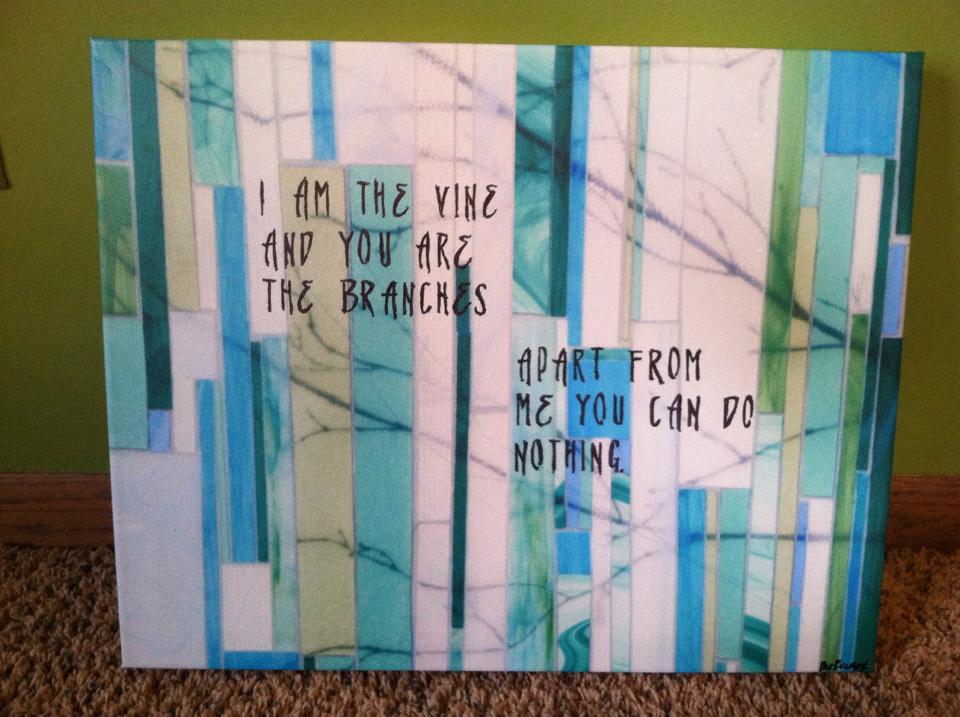 I AM THE VINE
AND YOU ARE
THE BRANCHES
APART FROM
ME YOU CAN DO
NOTHING.